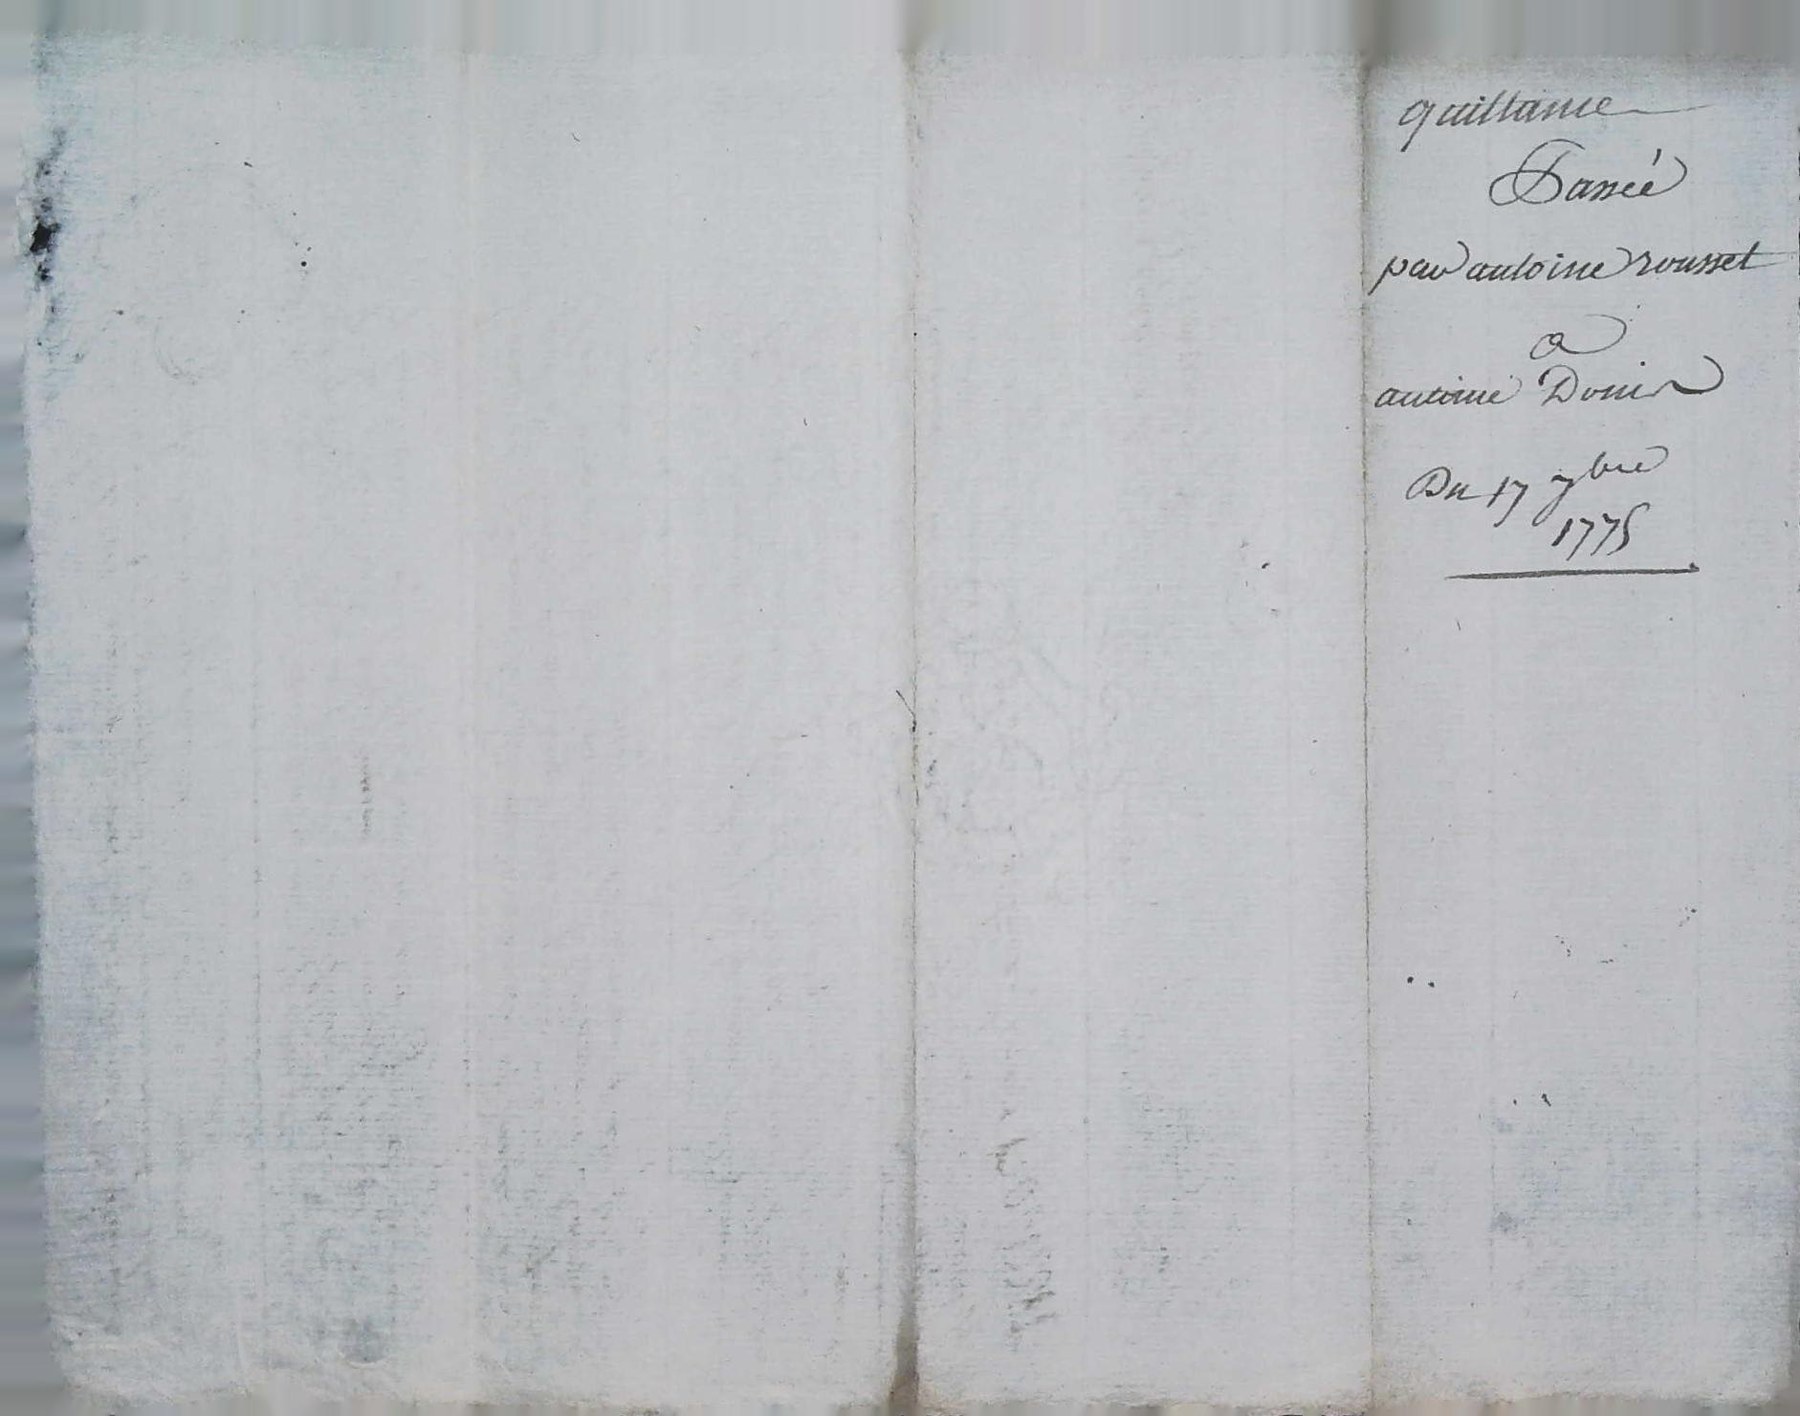 quittance
Passée
par antoine rousset
a
antoine Donin
Du 17 7bre
1775